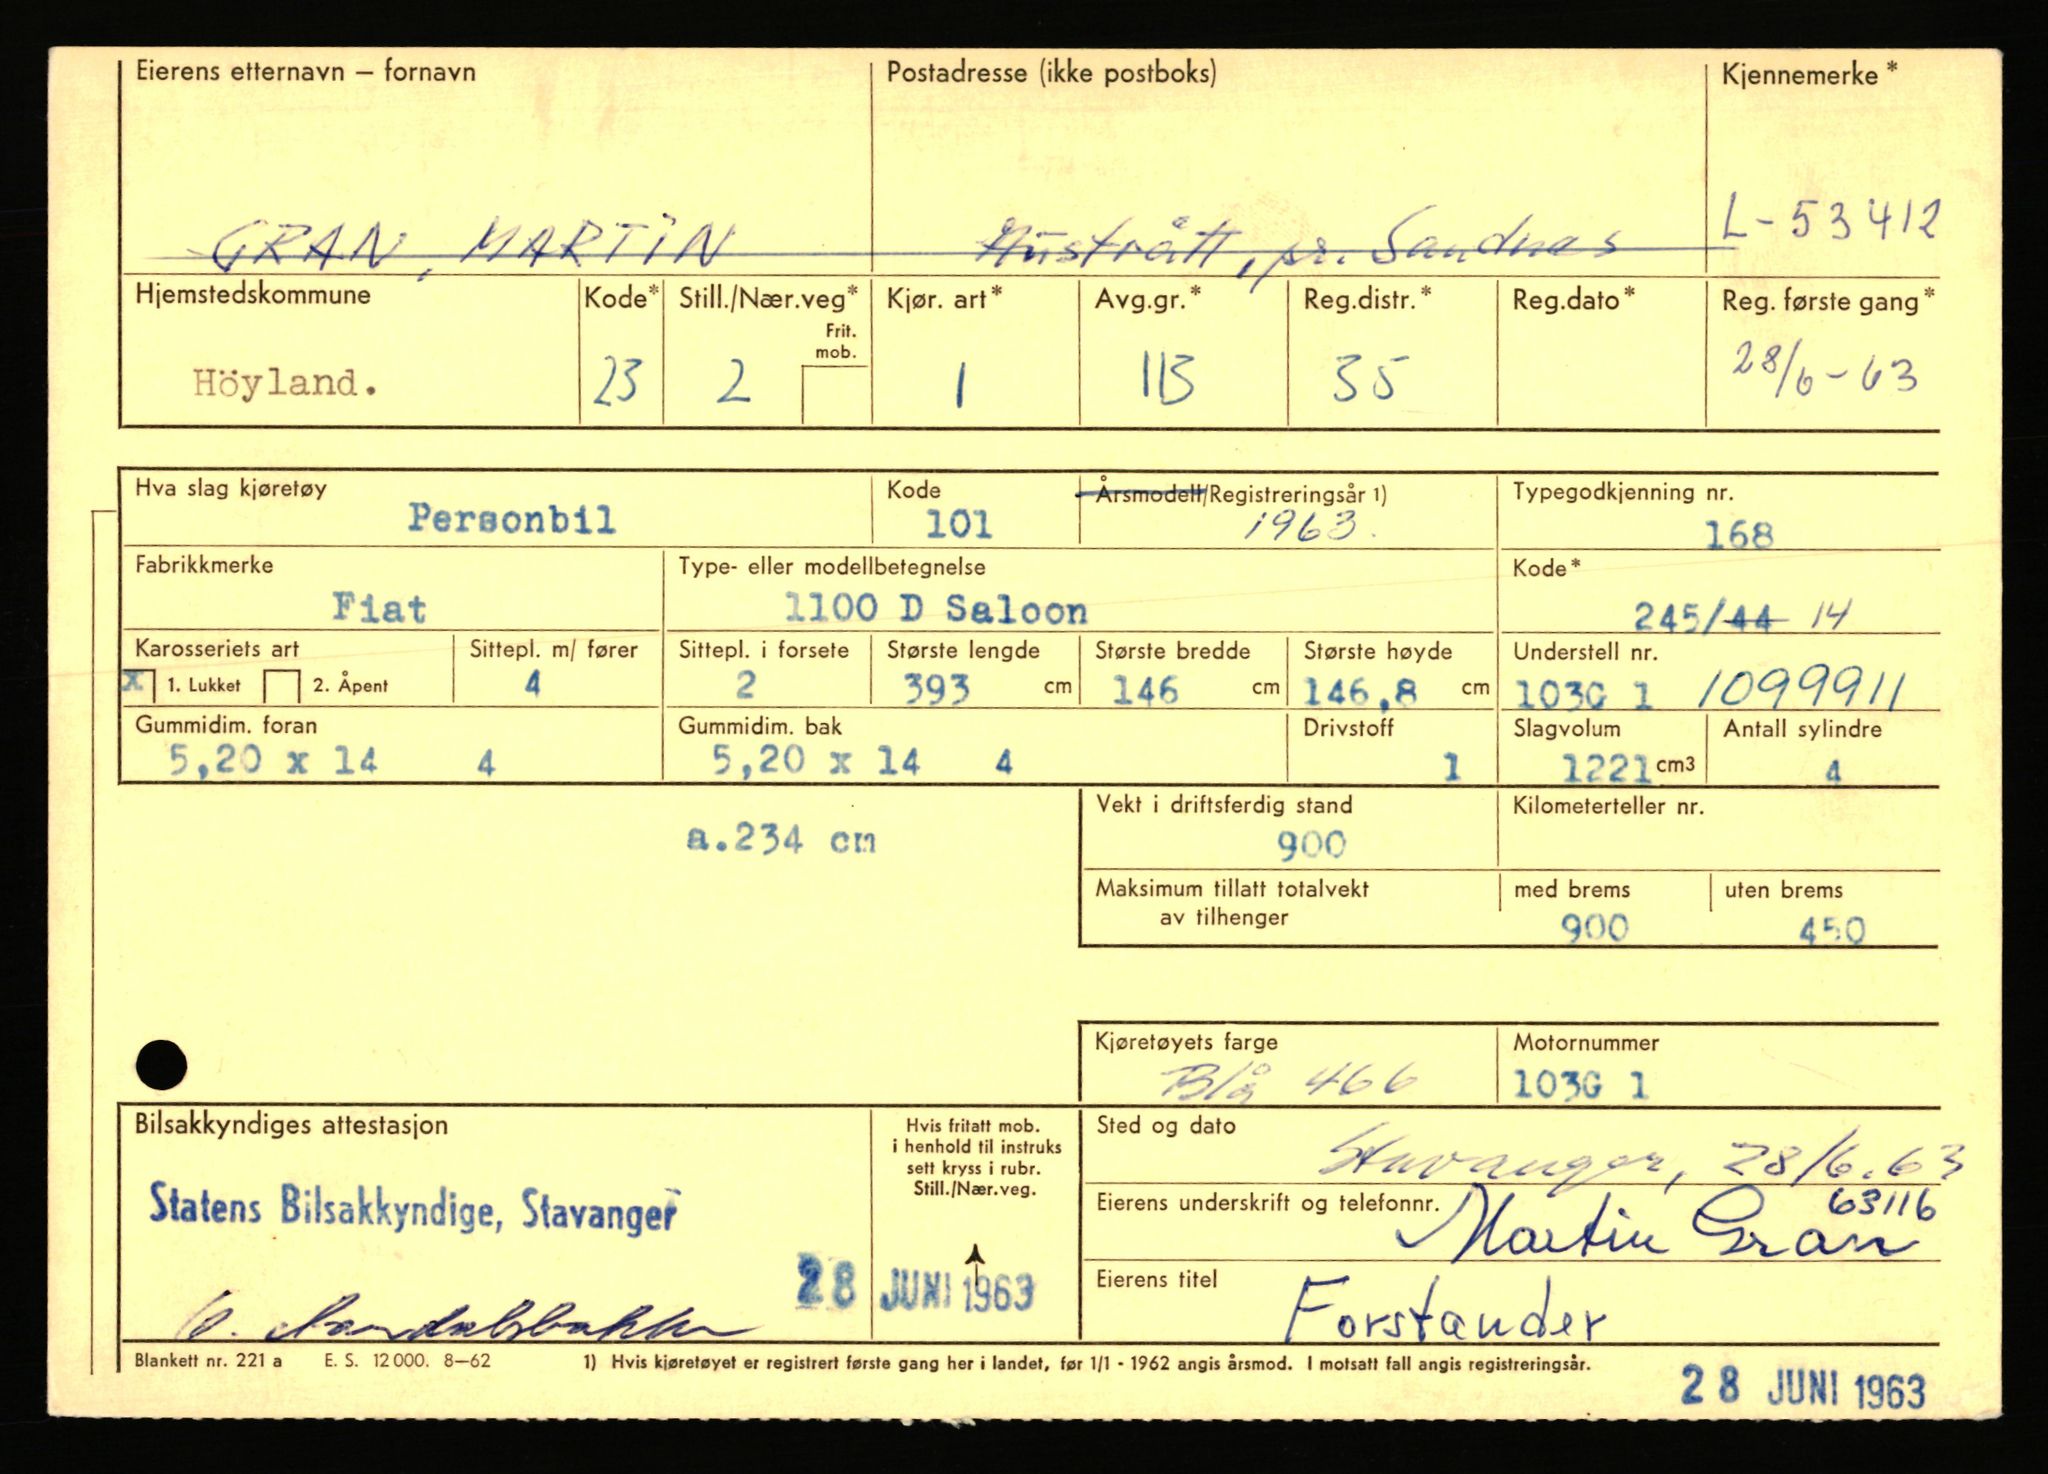 Eierens etternavn – fornavn Postadresse (ikke postboks) Kjennemerke*
GRAN, MARTIN Hustrått, pr. Sandnes L-53412
Hjemstedskommune Kode* Still./Nær.veg* Kjør. art* Avg.gr.* Reg.distr.* Reg.dato* Reg. første gang*
Frit.
mob.
Höyland. 23 2 1 113 35 28/6-63
Hva slag kjøretøy Kode Årsmodell/Registreringsår 1) Typegodkjenning nr.
Personbil 101 1963. 168
Fabrikkmerke Type- eller modellbetegnelse Kode*
Fiat 1100 D Saloon 245/44 14
Karosseriets art Sittepl. m/ fører Sittepl. i forsete Største lengde Største bredde Største høyde Understell nr.
x 1. Lukket 2. Åpent 4 2 393 cm 146 cm 146,8 cm 103G 1 1099911
Gummidim. foran Gummidim. bak Drivstoff Slagvolum Antall sylindre
5,20 x 14 4 5,20 x 14 4 1 1221 cm3 4
Vekt i driftsferdig stand Kilometerteller nr.
a.234 cm 900
Maksimum tillatt totalvekt med brems uten brems
av tilhenger 900 450
Kjøretøyets farge Motornummer
Blå 466 103G 1
Bilsakkyndiges attestasjon Hvis fritatt mob. Sted og dato
i henhold til instruks
sett kryss i rubr.
Still./Nær.veg.
Stavanger, 28/6.63
Statens Bilsakkyndige, Stavanger
Eierens underskrift og telefonnr. 63116
Martin Gran
28 JUNI 1963
Eierens titel
Forstander
Blankett nr. 221 a E. S. 12 000. 8–62 1) Hvis kjøretøyet er registrert første gang her i landet, før 1/1 - 1962 angis årsmod. I motsatt fall angis registreringsår.
28 JUNI 1963